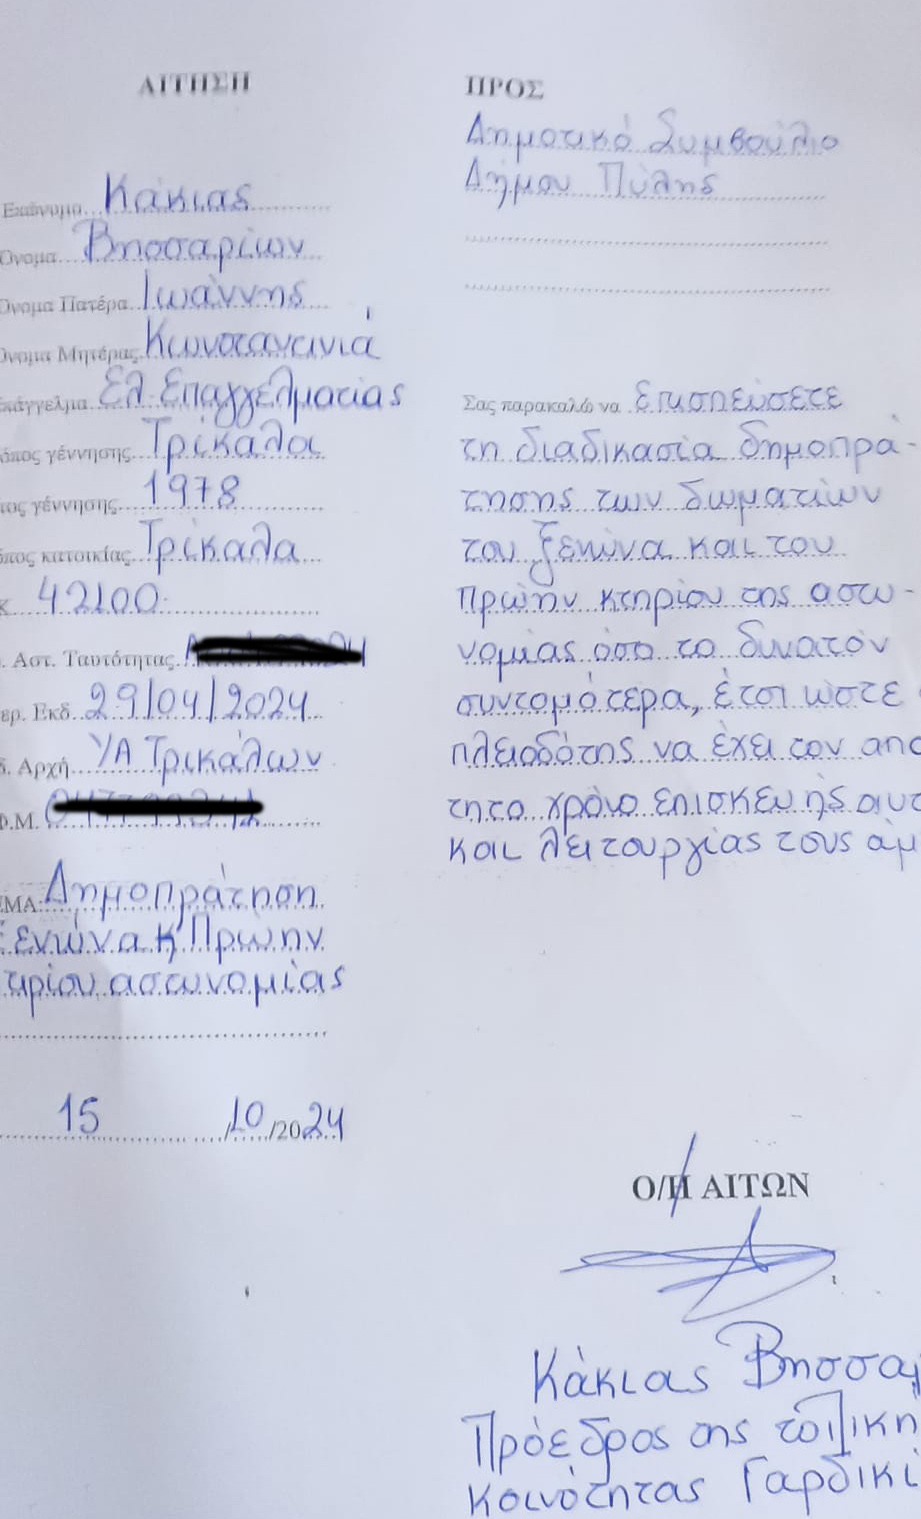 ΑΙΤΗΣΗ
Επώνυμο Κάκιας
Όνομα Βησσαρίων
Όνομα Πατέρα Ιωάννης
Όνομα Μητέρας Κωνσταντινιά
πάγγελμα Ελ. Επαγγελματίας
όπος γέννησης Τρίκαλα
τος γέννησης 1978
όπος κατοικίας Τρίκαλα
Κ 42100
. Αστ. Ταυτότητας
ερ. Εκδ. 29/04/2024
δ. Αρχή Υ/Α Τρικάλων
Φ.Μ.
ΕΜΑ: Δημοπράτηση
Ξενώνα κ' Πρώην
τιρίου αστυνομίας
15 /10 /2024
ΠΡΟΣ
Δημοτικό Συμβούλιο
Δήμου Πύλης
Σας παρακαλώ να επισπεύσετε
τη διαδικασία δημοπρά-
τησης των δωματίων
του ξενώνα και του
πρώην κτηρίου της αστυ-
νομίας όσο το δυνατόν
συντομότερα, έτσι ώστε
πλειοδότης να έχει τον απα
τητο χρόνο επισκευής αυτ
και λειτουργίας τους άμ
Ο/Η ΑΙΤΩΝ
Κάκιας Βησσα
Πρόεδρος της τοπικη
Κοινότητας Γαρδικί